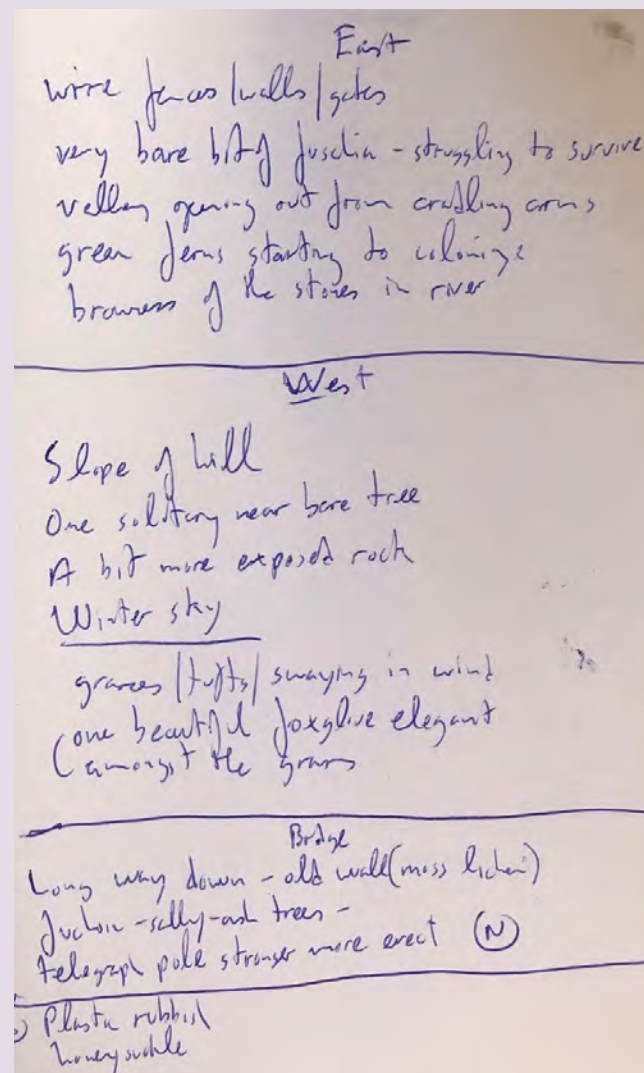 East
wire fences/walls/gates
very bare bit of fuschia - struggling to survive
valley opening out from cradling arms
green ferns starting to colonize
brownness of the stones in river
West
Slope of hill
One solitary near bare tree
A bit more exposed rock
Winter sky
grasses/tufts/swaying in wind
(one beautiful foxglove elegant
amongst the grass
Bridge
Long way down - old wall (moss lichen)
fuchsia - sally - ash trees -
telegraph pole stronger more erect (N)
Plastic rubbish
honeysuckle